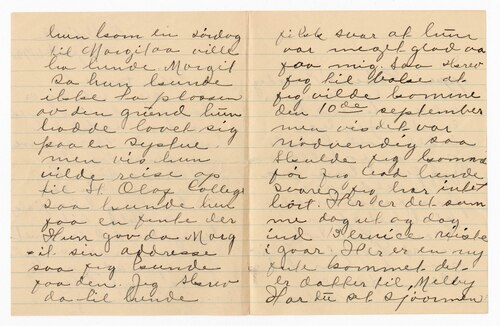 hun kom en søndag
til Margit aa ville
ha hende Margit
sa hun kunde
ikke ta plassen
av den grund hun
hadde lovet sig
paa en
men vis hun
vilde reise op
til St. Olaf College
saa kunde hun
faa en jente der
Hun gav da Marg
it sin addresse
saa jeg kunde
faa den. Jeg skrev
da til hende
fik svar at hun
var meget glad aa
faa mig. Saa skrev
jeg til bake at
jeg vilde komme
den 10de september
men vis det var
nødvendig saa
skulde jeg komme
før jeg ved hende
svarer jeg har intet
hørt. Her er det sam
me dag ut og dag
ind. Bernice reiste
igaar. Her er en ny
jente kommet det
er datter til Melby
Har du set